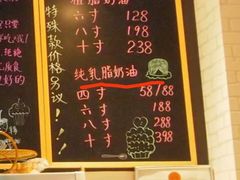 植脂奶油
六寸 128
八寸 198
十寸 238
特殊款价格另议!!!
纯乳脂奶油
四寸 58/88
六寸 188
八寸 288
十寸 398